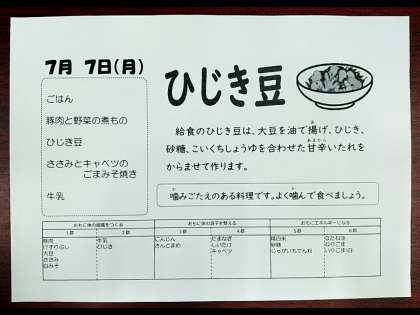 7月 7日(月)
ひじき豆
ごはん
豚肉と野菜の煮もの
ひじき豆
ささみとキャベツの
ごまみそ焼き
牛乳
給食のひじき豆は、大豆を油で揚げ、ひじき、
砂糖、こいくちしょうゆを合わせた甘辛いたれを
からませて作ります。
噛みごたえのある料理です。よく噛んで食べましょう。
おもに体の組織をつくる おもに体の調子を整える おもにエネルギーになる
1群 2群 3群 4群 5群 6群
豚肉 牛乳 にんじん たまねぎ 精白米 なたね油
けずりぶし ひじき さんどまめ しいたけ 砂糖 ねりごま
大豆 キャベツ じゃがいもでん粉 いりごま
ささみ
白みそ